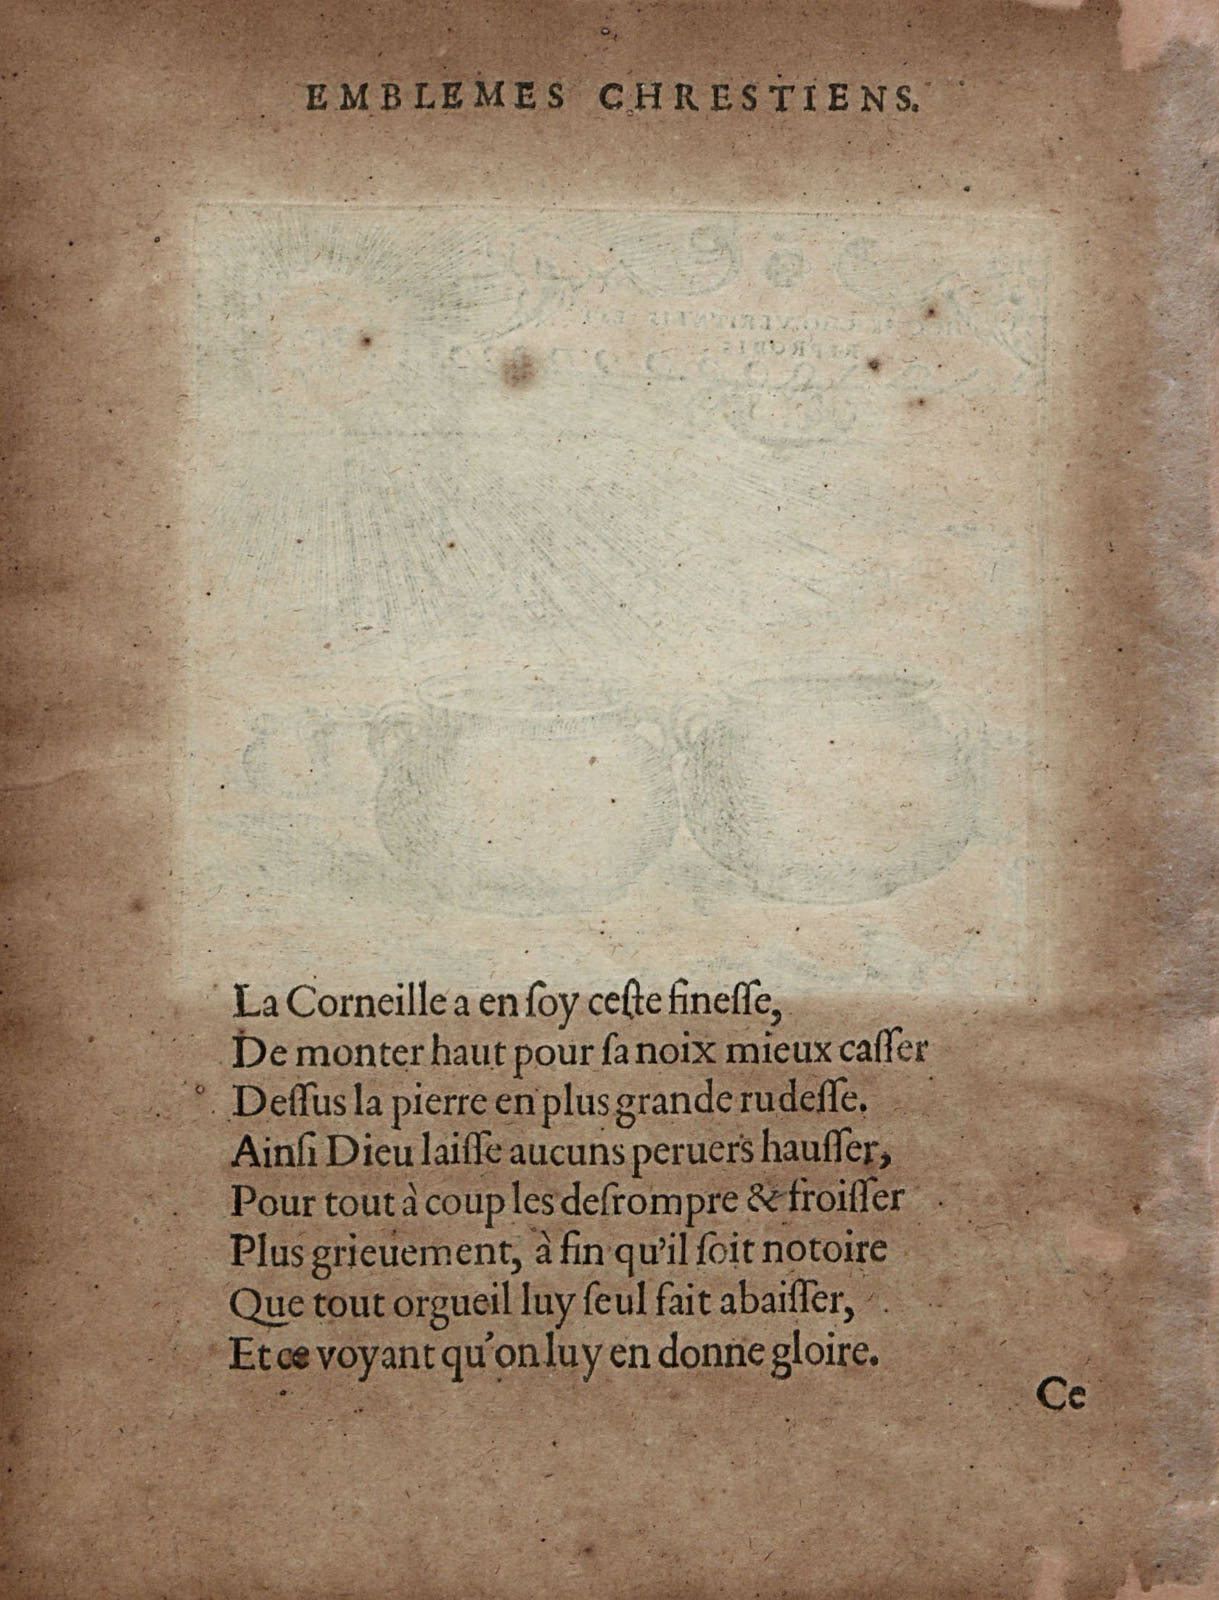 EMBLEMES CHRESTIENS.
La Corneille a en ſoy ceſte fineſſe,
De monter haut pour ſa noix mieux caſſer
Deſſus la pierre en plus grande rudeſſe.
Ainſi Dieu laiſſe aucuns peruers hauſſer,
Pour tout à coup les deſrompre & froiſſer
Plus grieuement, à fin qu'il ſoit notoire
Que tout orgueil luy ſeul fait abaiſſer,
Et ce voyant qu'on luy en donne gloire.
Ce